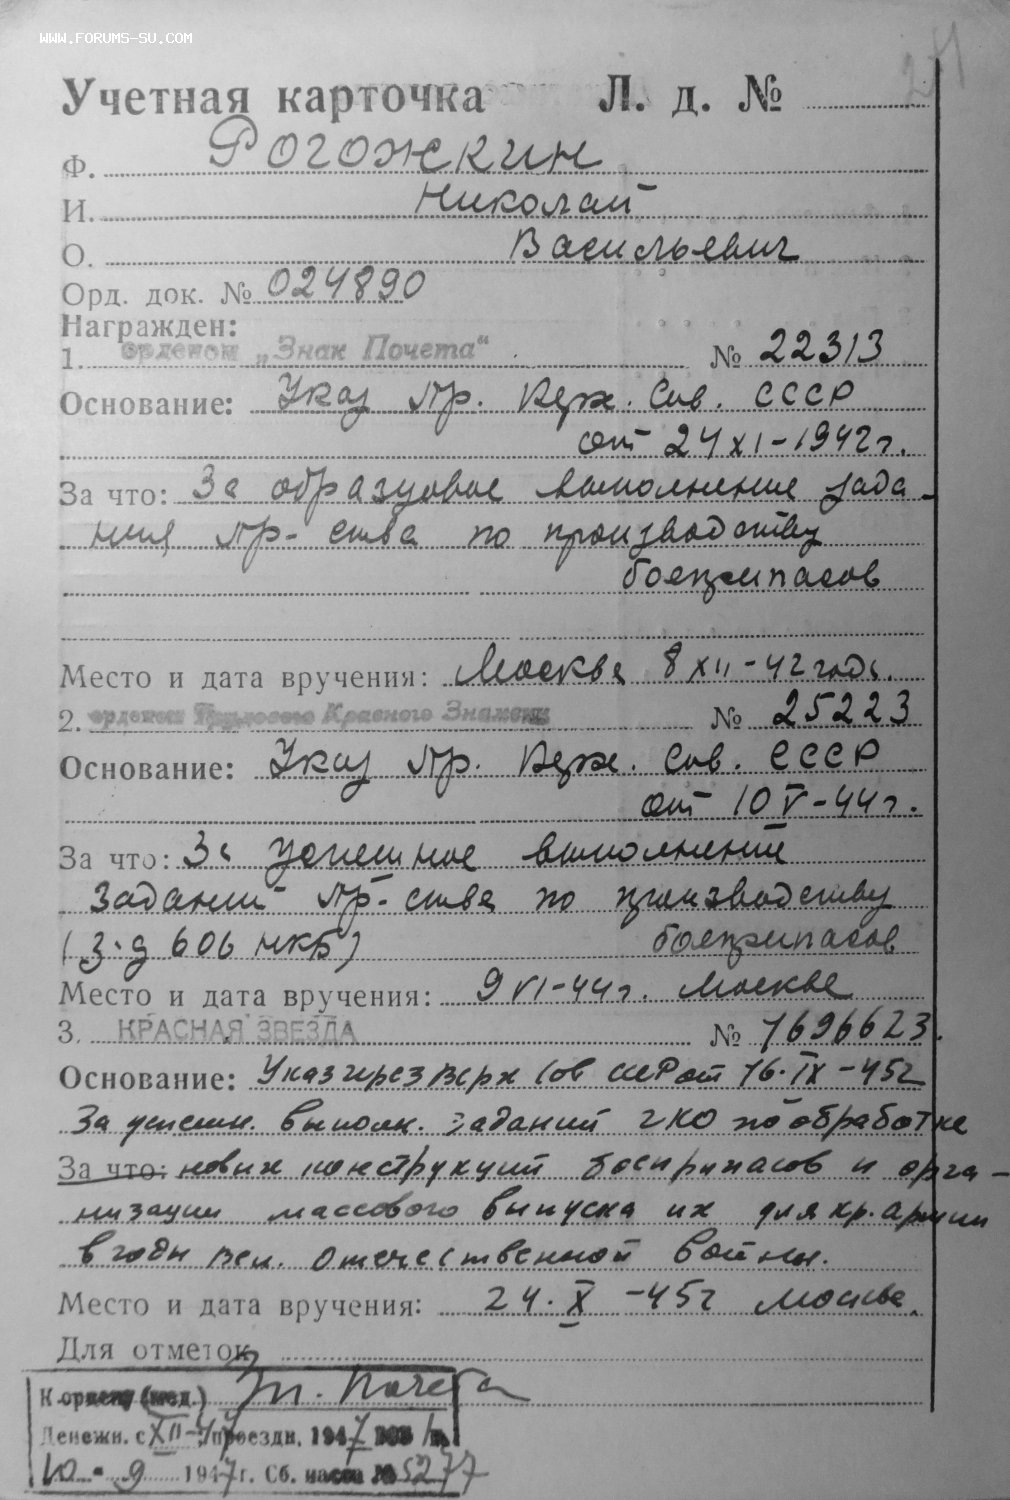 WWW.FORUMS-SU.COM
24
Учетная карточка Л. д. №
Ф. Рогожкин
И. Николай
О. Васильевич
Орд. док. № 024890
Награжден:
1. орденом „Знак Почета“ № 22313
Основание: Указ Пр. Верх. Сов. СССР
от 24 XI-1942 г.
За что: За образцовое выполнение зада-
ния пр-ства по производству
боеприпасов
Место и дата вручения: Москва 8 XII-42 года.
2. орденом Трудового Красного Знамени № 25223
Основание: Указ Пр. Верх. Сов. СССР
от 10 V-44 г.
За что: За успешное выполнение
заданий пр-ства по производству
(з-д 606 НКБ) боеприпасов
Место и дата вручения: 9 VI-44 г. Москва
3. КРАСНАЯ ЗВЕЗДА № 1696623.
Основание: Указ през Верх Сов СССР от 16.IX-45г
За успешн. выполн. заданий ГКО по обработке
За что: новых конструкций боеприпасов и орга-
низации массового выпуска их для кр. армии
в годы Вел. Отечественной войны.
Место и дата вручения: 24.X-45г Москва.
Для отметок
К ордену (мед.) Зн. Почета
Денежн. с XII-47, проездн. 1947
10-9 1947 г. Сб. № 5277